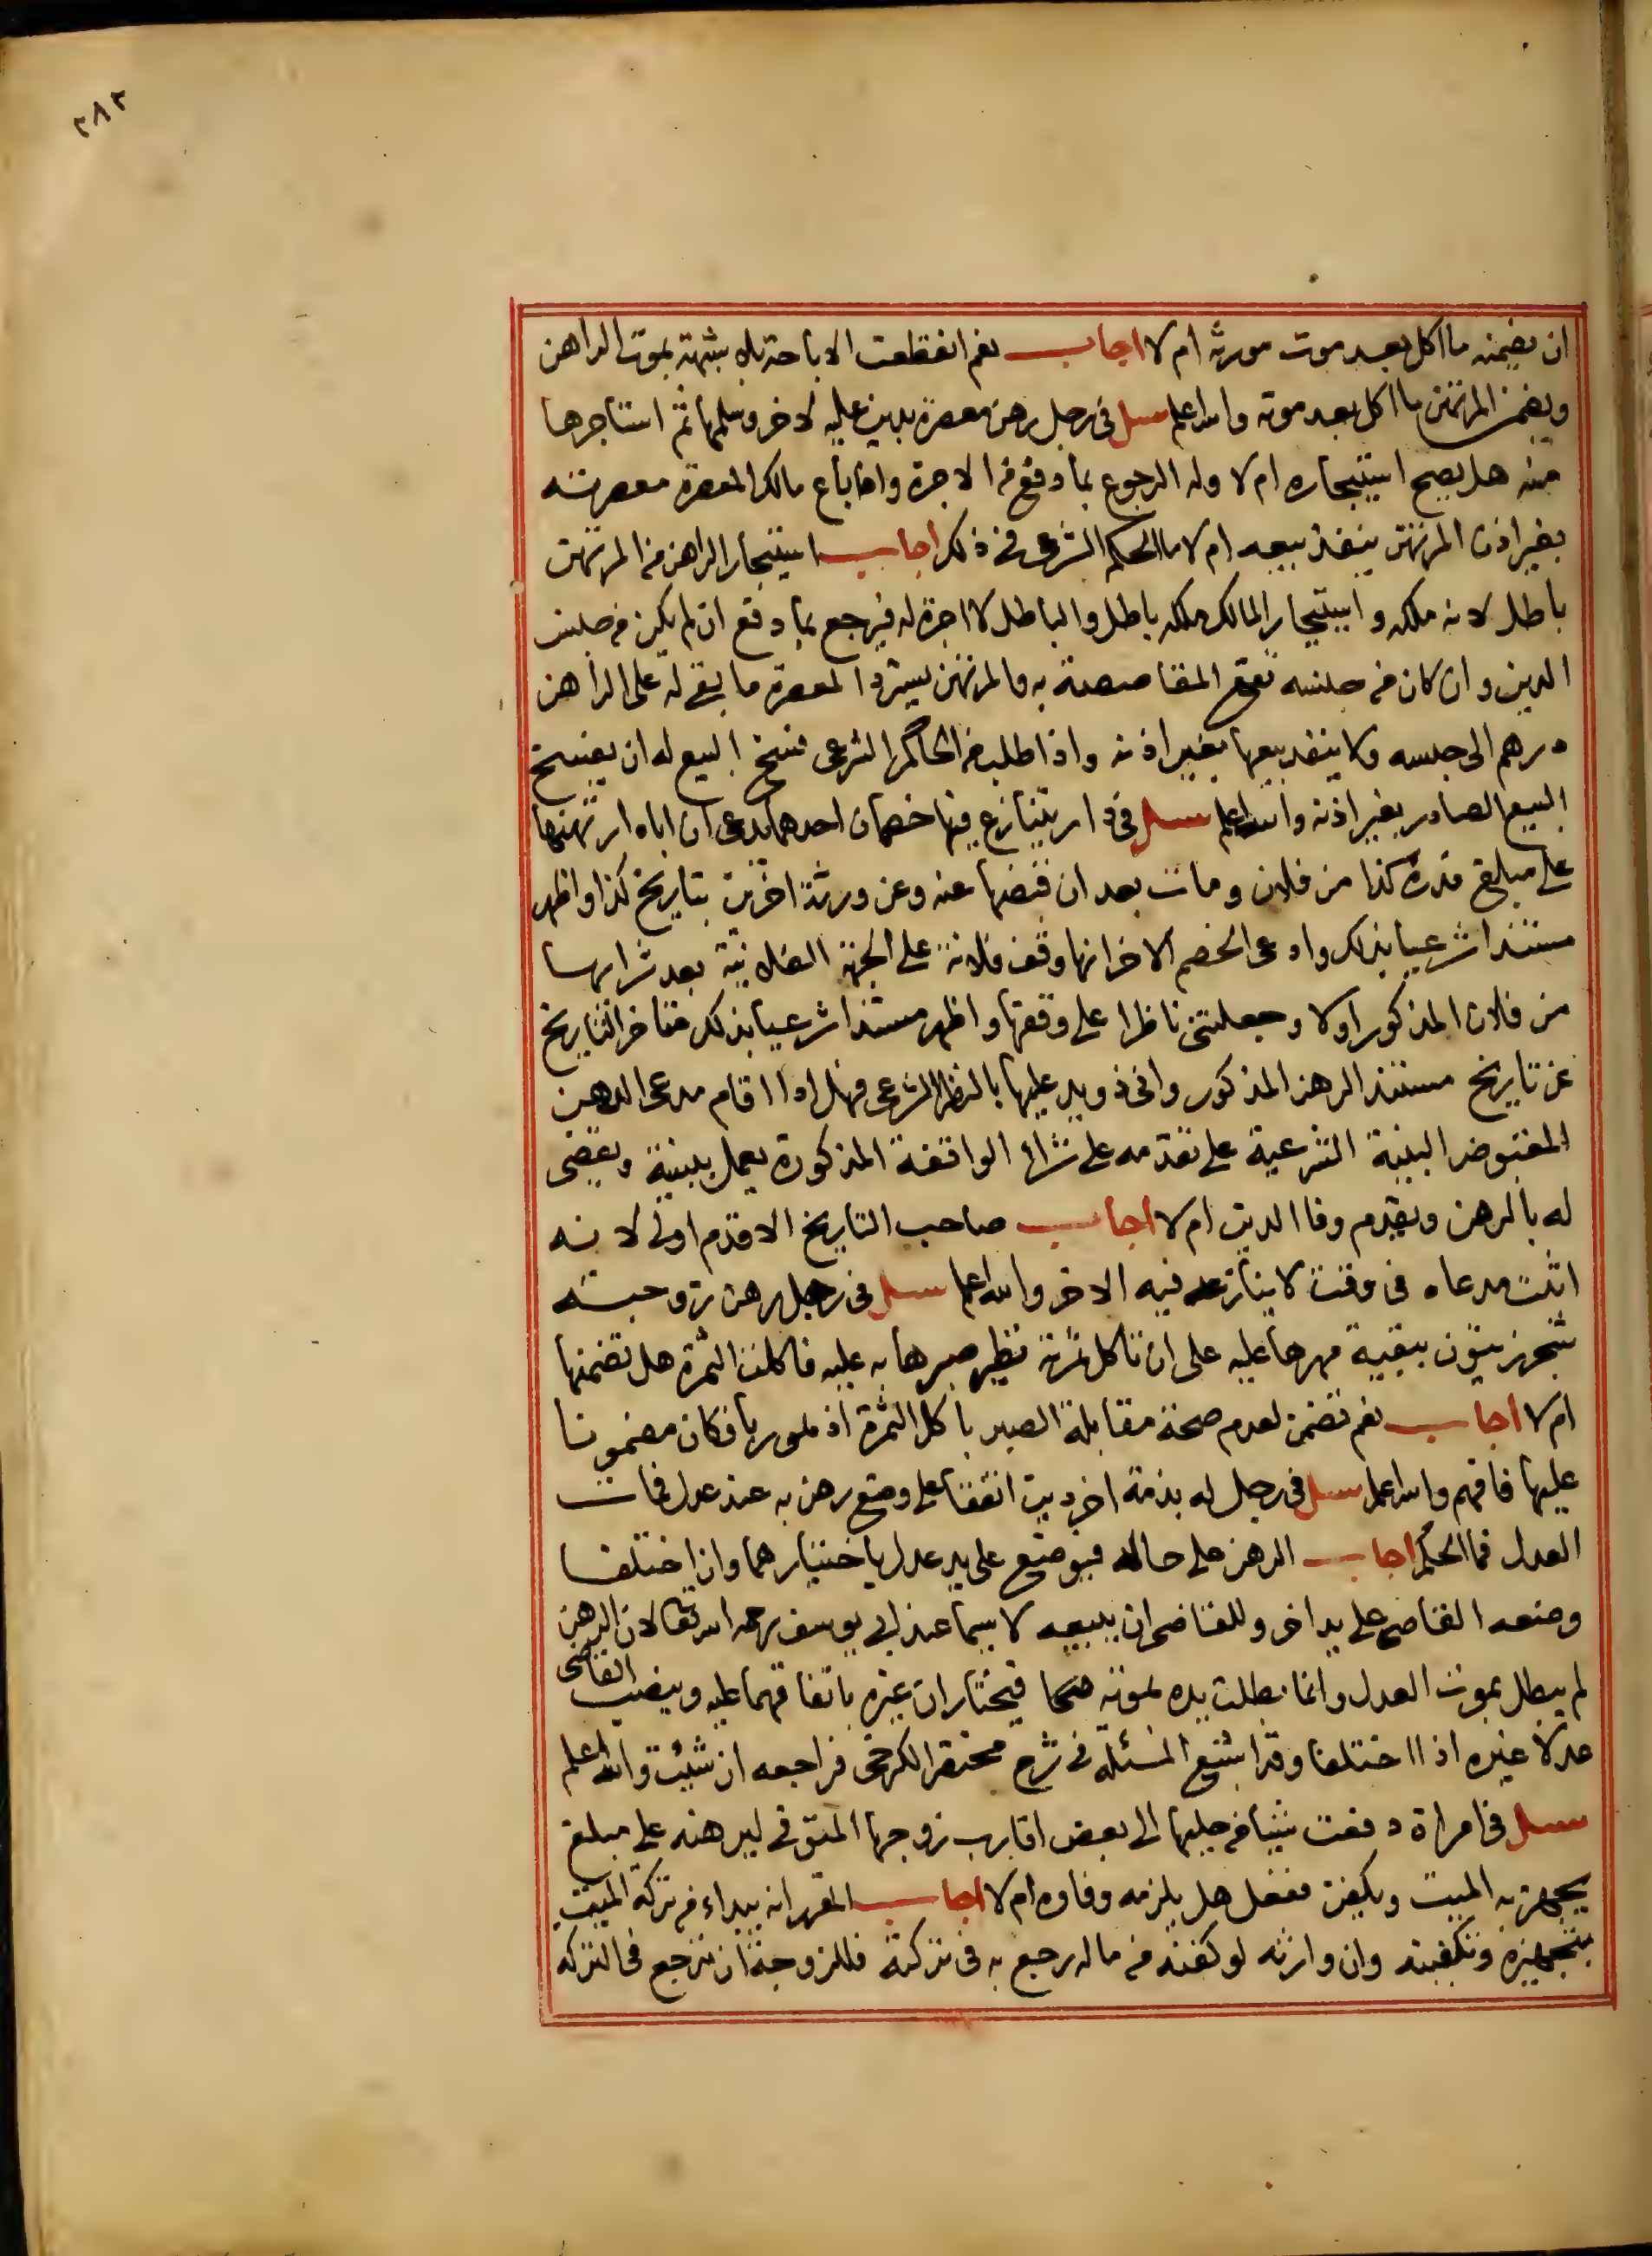 ٢٨٢
ان يضمنه ما اكل بعد موت مورثه ام لا اجاب نعم انقطعت الاباحة بلا شبهة بموت الراهن
ويضمن المرتهن ما اكل بعد موته والله اعلم سئل في رجل رهن معصرة بدين عليه لاخر وسلمها ثم استاجرها
منه هل يصح استيجاره ام لا وله الرجوع بما دفع من الاجرة واذا باع مالك المعصرة معصرته
بغير اذن المرتهن ينفذ بيعه ام لا ما الحكم الشرعي في ذلك اجاب استيجار الراهن من المرتهن
باطل لانه ملكه واستيجار المالك ملكه باطل والباطل لا اجرة له فيرجع بما دفع ان لم يكن من جنس
الدين وان كان من جنسه تقع المقاصصة به والمرتهن يسترد المعصرة ما بقي له على الراهن
درهم الى حبسه ولا ينفذ بيعها بغير اذنه واذا طلب من الحاكم الشرعي فسخ البيع له ان يفسخ
البيع الصادر بغير اذنه والله اعلم سئل في دار يتنازع فيها خصمان احدهما يدعى ان اباه ارتهنها
على مبلغ قدره كذا من فلان ومات بعد ان قبضها عنه وعن ورثة اخرين بتاريخ كذا واظهر
مستندا شرعيا بذلك وادعى الخصم الاخر انها وقف فلانة على الجهة الفلانية بعد شرايها
من فلان المذكور اولا وجعلتني ناظرا على وقفها واظهر مستندا شرعيا بذلك متاخر التاريخ
عن تاريخ مستند الرهن المذكور واني ذو يد عليها بالنظر الشرعي فهل اذا اقام مدعى الرهن
المقبوض البينة الشرعية على تقدمه على شراء الواقفة المذكورة يعمل ببينة ويقضى
له بالرهن ويقدم وفا الدين ام لا اجاب صاحب التاريخ الاقدم اولى لانه
اثبت مدعاه في وقت لا ينازعه فيه الاخر والله اعلم سئل في رجل رهن زوجته
شجر زيتون ببقية مهرها عليه على ان تاكل ثمرته نظير صبرها به عليه فاكلت الثمرة هل تضمنها
ام لا اجاب نعم تضمن لعدم صحة مقابلة الصبر باكل الثمرة اذ هو ربا فكان مضمونا
عليها فافهم والله اعلم سئل في رجل له بذمة اخر دين اتفقا على وضع رهن به عند عدل فمات
العدل فما الحكم اجاب الرهن على حاله فيوضع على يد عدل باختيارهما وان اختلفا
وضعه القاضي على يد اخر وللقاضي ان يبيعه لا سيما عند ابي يوسف رحمه الله تعالى لان الرهن
لم يبطل بموت العدل وانما بطلت يده بموته فيختاران غيره باتفاقهما عليه وينصب القاضي
عدلا غيره اذا اختلفا وقد اشبع المسئلة في شرح مختصر الكرخي فراجعه ان شئت والله اعلم
سئل في امراة دفعت شيئا من حليها الى بعض اقارب زوجها المتوفى ليرهنه على مبلغ
يجهز به الميت ويكفن ففعل هل يلزمه وفاوه ام لا اجاب المقرر انه يبداء من تركة الميت
بتجهيزه وتكفينه وان وارثه لو كفنه من ماله رجع به في تركته فللزوجة ان ترجع في التركه